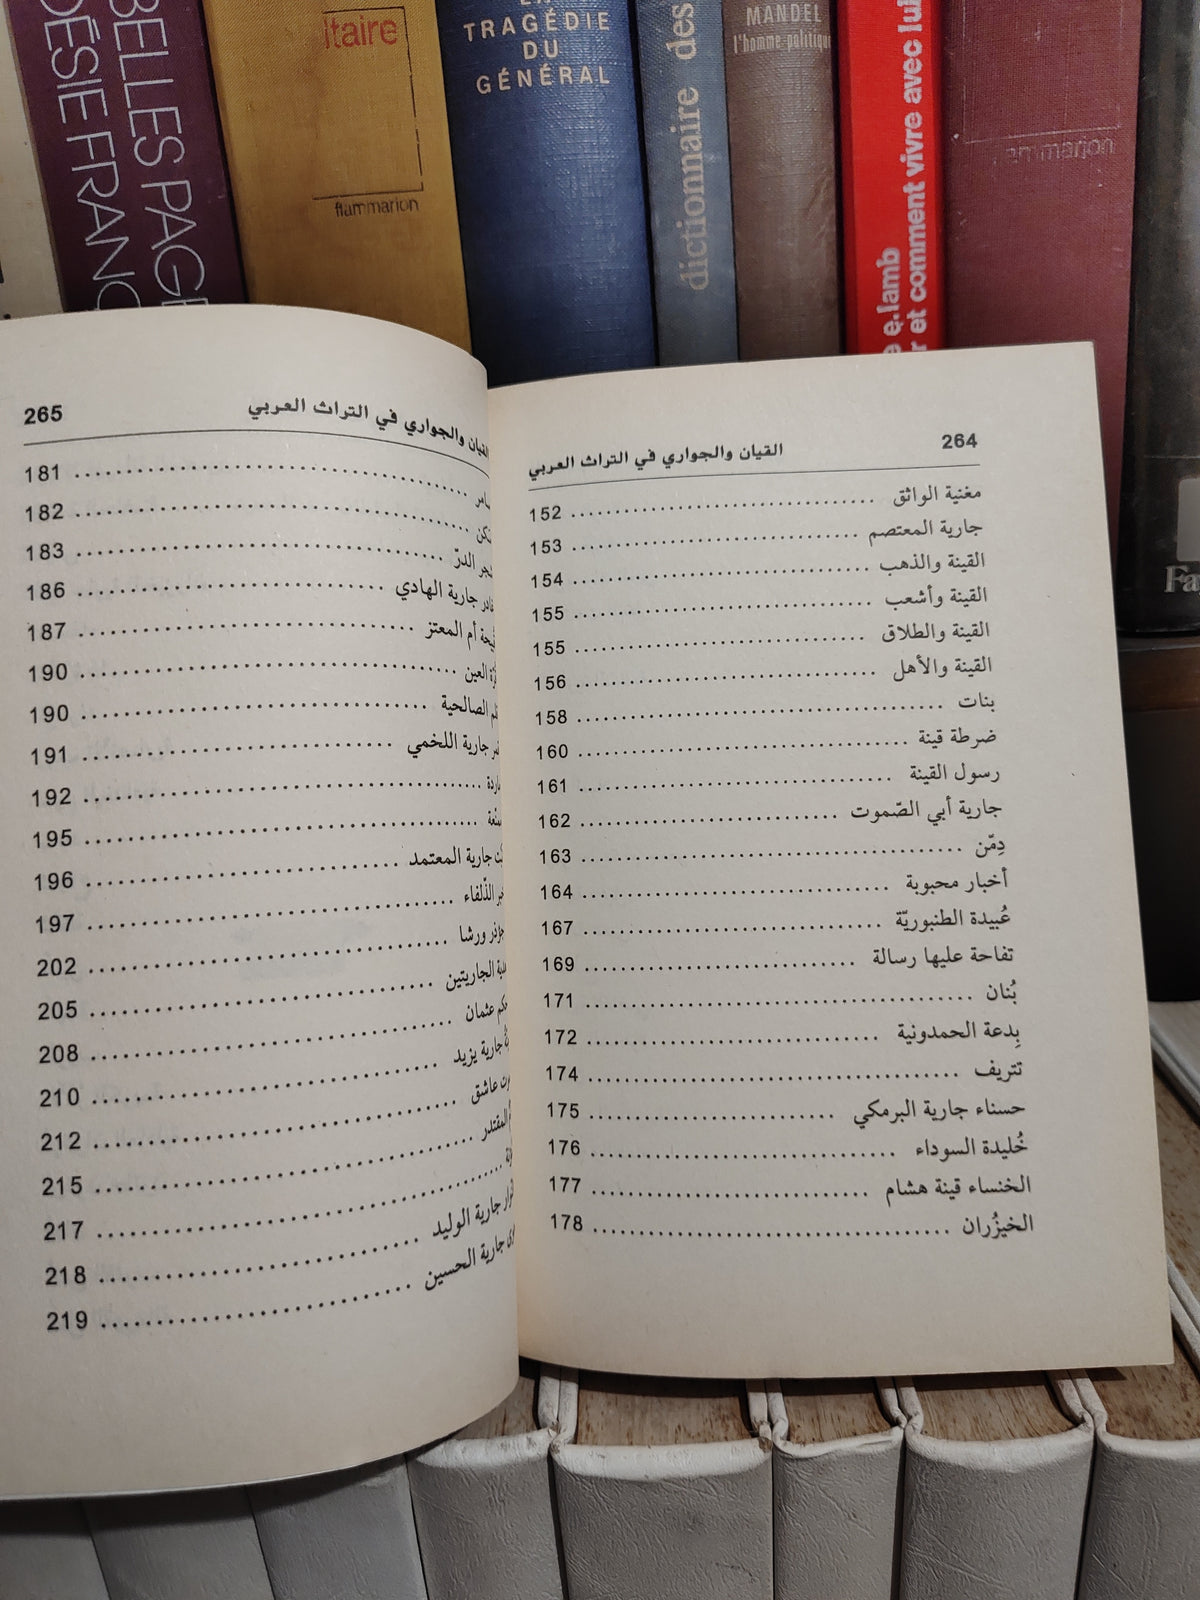 BELLES PAGE
DÉSIE FRANÇ
ltaire
flammarion
TRAGÉDIE
DU
GÉNÉRAL
dictionnaire des
MANDEL
l'homme politique
e e.lamb
r et comment vivre avec lui
flammarion
Fa
264 القيان والجواري في التراث العربي
مغنية الواثق ........ 152
جارية المعتصم ........ 153
القينة والذهب ........ 154
القينة وأشعب ........ 155
القينة والطلاق ........ 155
القينة والأهل ........ 156
بنات ........ 158
ضرطة قينة ........ 160
رسول القينة ........ 161
جارية أبي الصّموت ........ 162
دِمّن ........ 163
أخبار محبوبة ........ 164
عُبيدة الطنبوريّة ........ 167
تفاحة عليها رسالة ........ 169
بُنان ........ 171
بِدعة الحمدونية ........ 172
تتريف ........ 174
حسناء جارية البرمكي ........ 175
خُليدة السوداء ........ 176
الخنساء قينة هشام ........ 177
الخيزُران ........ 178
القيان والجواري في التراث العربي 265
........ 181
........ 182
الدرّ ........ 183
جارية الهادي ........ 186
أم المعتز ........ 187
العين ........ 190
الصالحية ........ 190
جارية اللخمي ........ 191
........ 192
........ 195
جارية المعتمد ........ 196
الذّلفاء ........ 197
ورشا ........ 202
الجاريتين ........ 205
عثمان ........ 208
جارية يزيد ........ 210
عاشق ........ 212
المقتدر ........ 215
........ 217
جارية الوليد ........ 218
جارية الحسين ........ 219